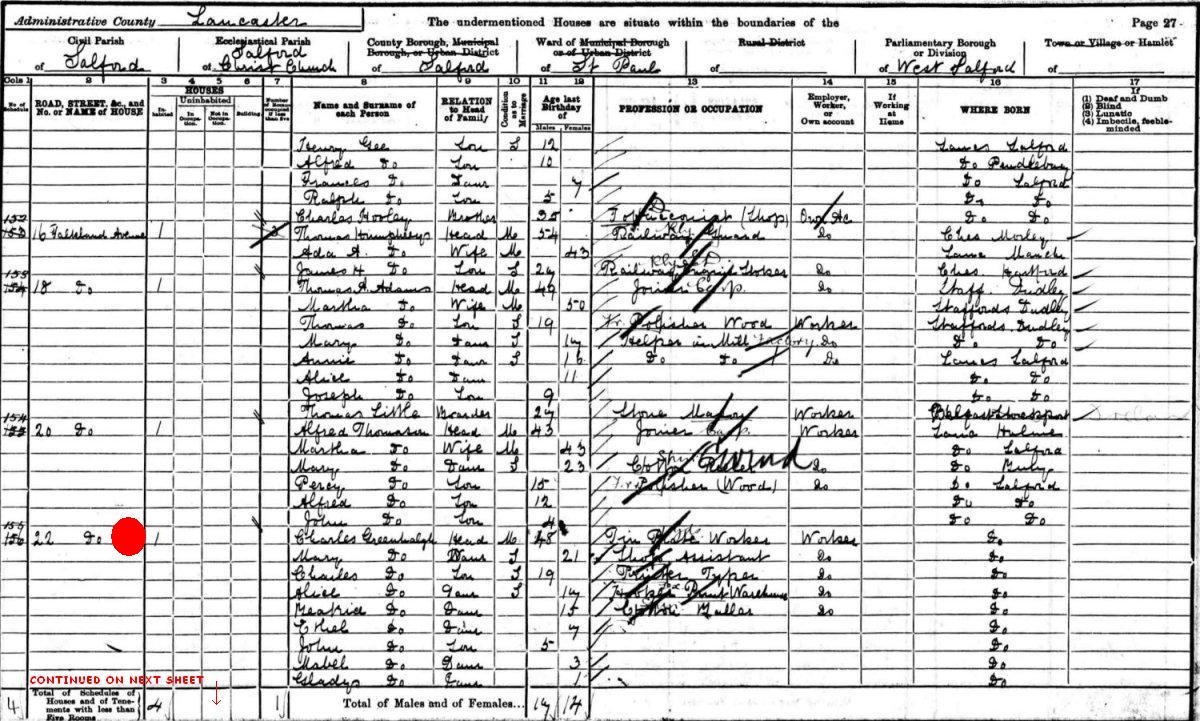 Administrative County Lancaster The undermentioned Houses are situate within the boundaries of the Page 27
Civil Parish of Salford
Ecclesiastical Parish of Salford Christ Church
County Borough, Municipal Borough, or Urban District of Salford
Ward of Municipal Borough or of Urban District of St Paul
Rural District of
Parliamentary Borough or Division of West Salford
Town or Village or Hamlet of
Cols 1 2 3 4 5 6 7 8 9 10 11 12 13 14 15 16 17
No. of Schedule
ROAD, STREET, &c., and No. or NAME of HOUSE
HOUSES
Inhabited
Uninhabited
In Occupation.
Not in Occupation.
Building
Name and Surname of each Person
RELATION to Head of Family
Condition as to Marriage
Age last Birthday of
Males Females
PROFESSION OR OCCUPATION
Employer, Worker, or Own account
If Working at Home
WHERE BORN
If (1) Deaf and Dumb (2) Blind (3) Lunatic (4) Imbecile, feeble-minded
Henry Gee Son S 12 Lancs Salford
Alfred Do Son 10 Do Pendlebury
Frances Do Daur 7 Do Salford
Ralph Do Son 5 Do Do
152 Charles Hooley Brother 35 Tobacconist (Shop) Own Ac Do Do
153 16 Falkland Avenue 1 3 Thomas Humphreys Head M 54 Railway Guard Do Ches Mobley
Ada A. Do Wife M 43 Lanc Manch
153 James H. Do Son S 24 Do Ches. Hartford
154 18 Do 1 Thomas A. Adams Head M 49 Joiner Carp. Do Staff Dudley
Martha Do Wife M 50 Staffords Dudley
Thomas Do Son S 19 Fr. Polisher Wood Worker Staffords. Dudley
Mary Do Daur S 17 Helper in Mill Factory Do Do Do
Annie Do Daur S 16 Do Do Do Lancs Salford
Alice Do Daur 11 Do Do
Joseph Do Son 9 Do Do
154 Thomas Little Boarder 27 Stone Mason Worker Stockport Ireland
155 20 Do 1 Alfred Thomason Head M 43 Joiner Carp Worker Lancs Hulme
Martha Do Wife M 43 Do Salford
Mary Do Daur S 23 Cotton Wind Do Do Bury
Percy Do Son 15 Fr. Polisher (Wood) Do Do Salford
Alfred Do Son 12 Do Do
155 John Do Son 4 Do Do
156 22 Do 1 Charles Greenhalgh Head M 48 Tin Plate Worker Worker Do
Mary Do Daur S 21 Shop Assistant Do Do
Charles Do Son S 19 Printer Do Do
Alice Do Daur S 17 Hooker Print Warehouse Do Do
Beatrid Do Daur 15 Cotton Do Do
Ethel Do Daur 7 Do
John Do Son 5 Do
Mabel Do Daur 3 Do
Gladys Do Daur 1 Do
CONTINUED ON NEXT SHEET
4 Total of Schedules of Houses and of Tenements with less than Five Rooms 4 1 Total of Males and of Females... 17 14